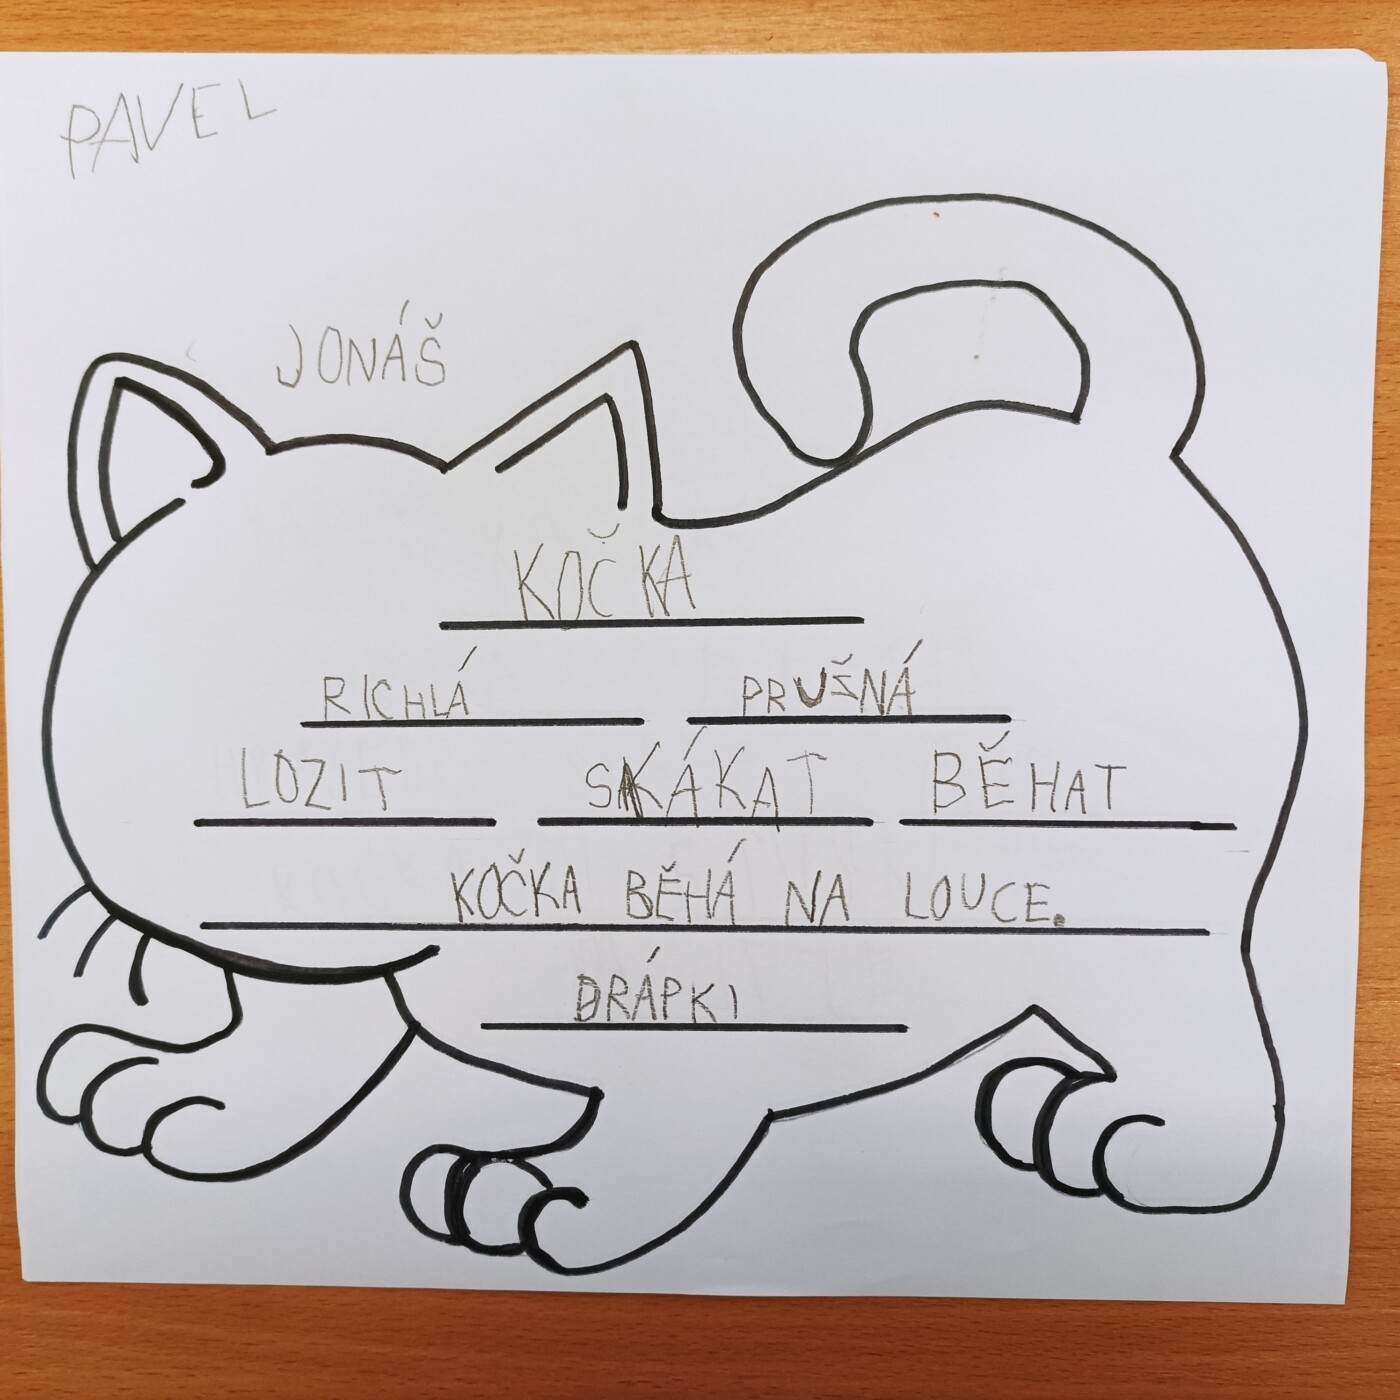 PAVEL
JONÁŠ
KOČKA
RICHLÁ PRUŠNÁ
LOZIT SKÁKAT BĚHAT
KOČKA BĚHÁ NA LOUCE.
DRÁPKI